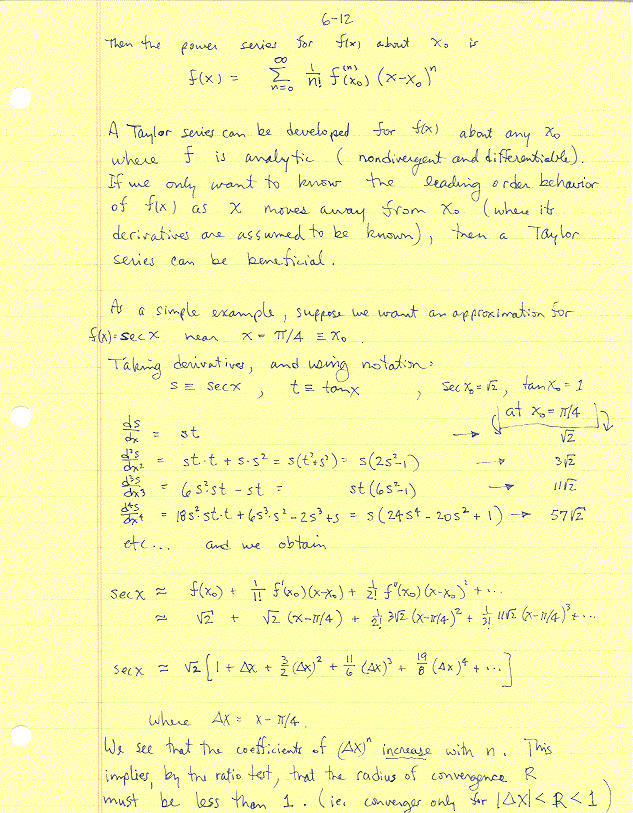 6-12
Then the power series for f(x) about x₀ is
f(x) = ∞ Σ n=0 1/n! f⁽ⁿ⁾(x₀) (x-x₀)ⁿ
A Taylor series can be developed for f(x) about any x₀
where f is analytic (nondivergent and differentiable).
If we only want to know the leading order behavior
of f(x) as x moves away from x₀ (where its
derivatives are assumed to be known), then a Taylor
series can be beneficial.
As a simple example, suppose we want an approximation for
f(x)=sec x near x = π/4 ≡ x₀.
Taking derivatives, and using notation:
s ≡ sec x , t ≡ tan x , sec x₀ = √2, tan x₀ = 1
at x₀ = π/4
ds/dx = st → √2
d²s/dx² = st·t + s·s² = s(t²+s²) = s(2s²-1) → 3√2
d³s/dx³ = 6s²st - st = st(6s²-1) → 11√2
d⁴s/dx⁴ = 18s²·st·t + 6s³·s² - 2s³ + s = s(24s⁴ - 20s² + 1) → 57√2
etc... and we obtain
sec x ≈ f(x₀) + 1/1! f'(x₀)(x-x₀) + 1/2! f''(x₀)(x-x₀)² + ...
≈ √2 + √2 (x-π/4) + 1/2! 3√2 (x-π/4)² + 1/3! 11√2 (x-π/4)³ + ...
sec x ≈ √2 [1 + Δx + 3/2 (Δx)² + 11/6 (Δx)³ + 19/8 (Δx)⁴ + ...]
where Δx = x - π/4.
We see that the coefficients of (Δx)ⁿ increase with n. This
implies, by the ratio test, that the radius of convergence R
must be less than 1. (ie. converges only for |Δx| < R < 1)